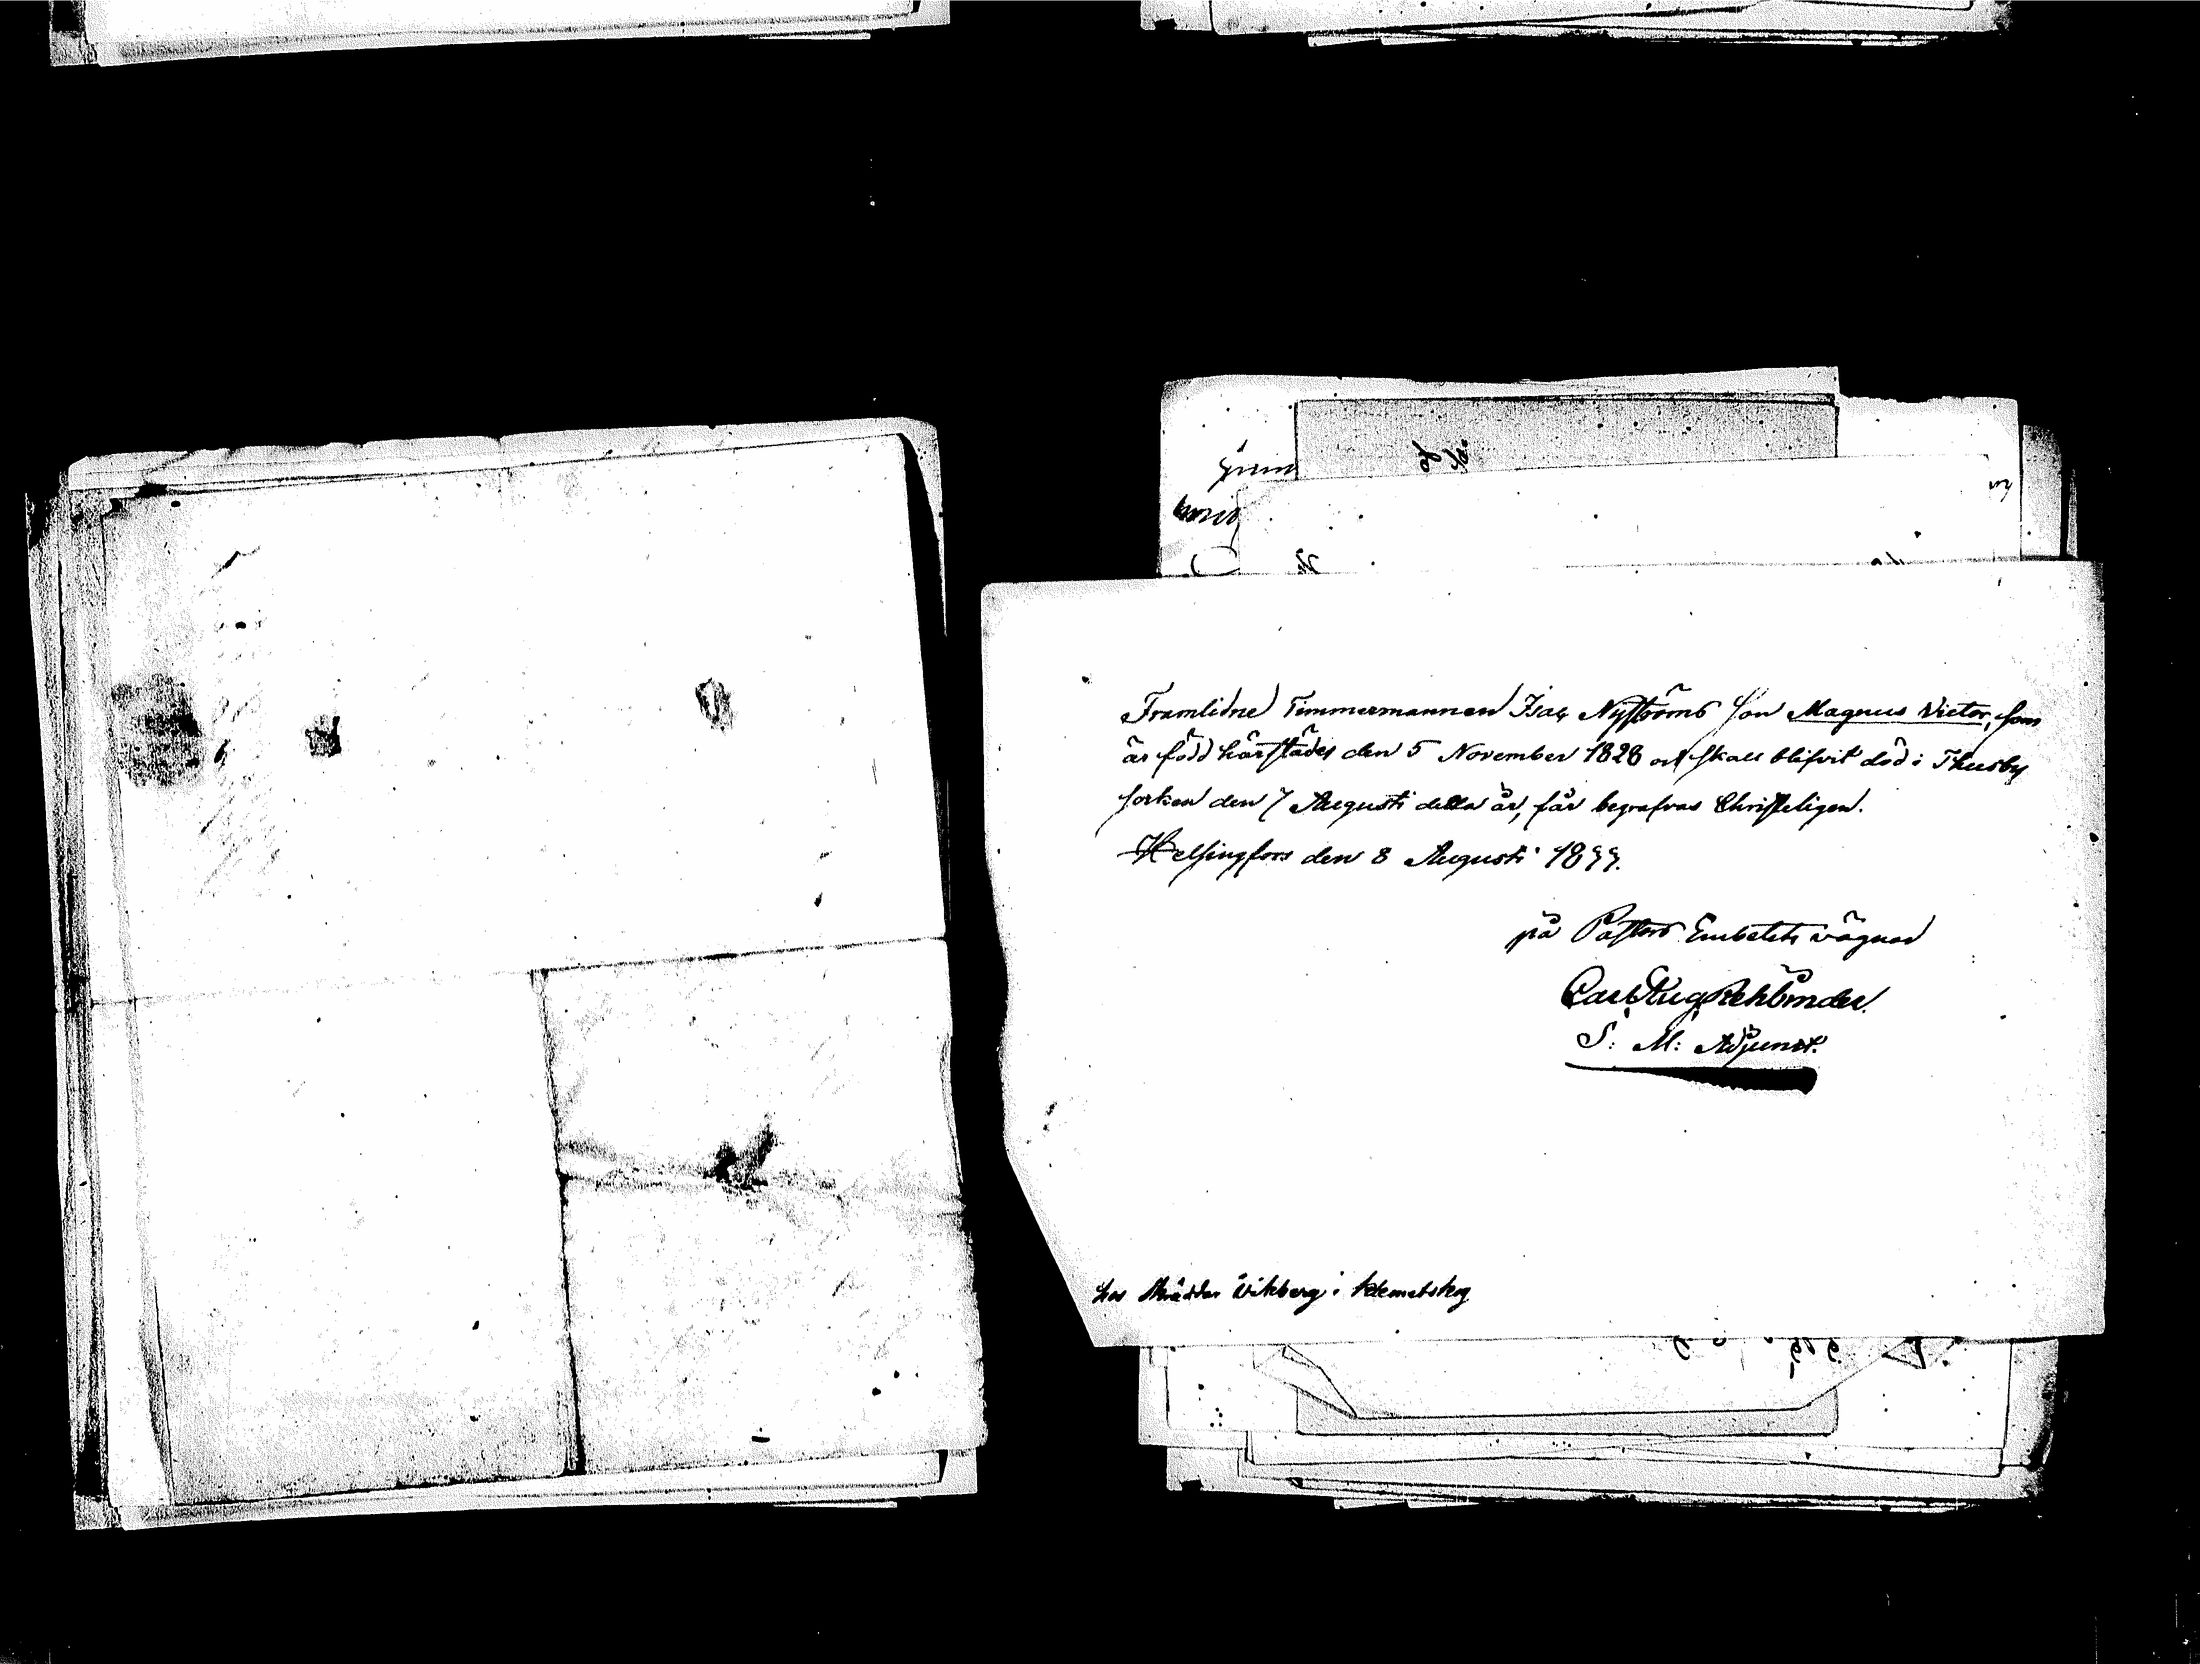 Framlidne Timmermannen Isac Nyströms son Magnus Victor, som
är född härstädes den 5 November 1828 och skall blifvit död i Thusby
socken den 7 Augusti detta år, får begrafvas Christeligen.
Helsingfors den 8 Augusti 1844.
på Pastors Embetets vägnar
Carl Aug Rehbinder.
S: M: Adjunct.
hos Skräddar Wikberg i Klemetskog